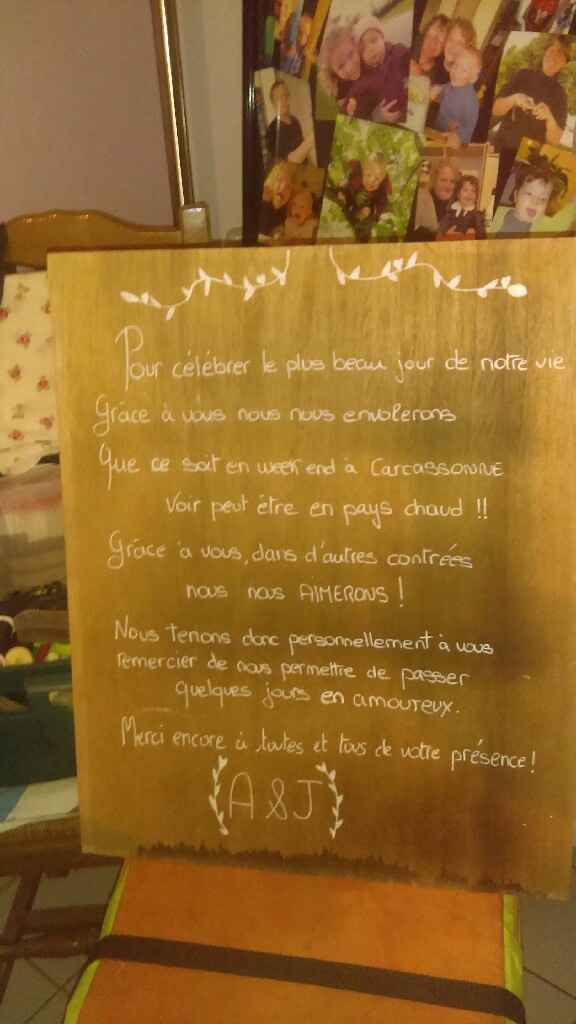 Pour célébrer le plus beau jour de notre vie
Grâce à vous nous nous envolerons
Que ce soit en week end à CARCASSONNE
Voir peut être en pays chaud !!
Grâce à vous, dans d'autres contrées
nous nous AIMERONS !
Nous tenons donc personnellement à vous
remercier de nous permettre de passer
quelques jours en amoureux.
Merci encore à toutes et tous de votre présence !
A & J